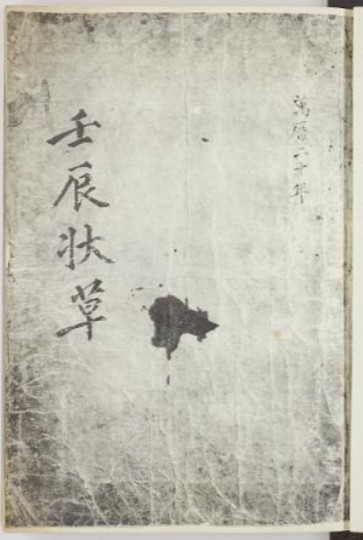 萬曆二十年
壬辰狀草